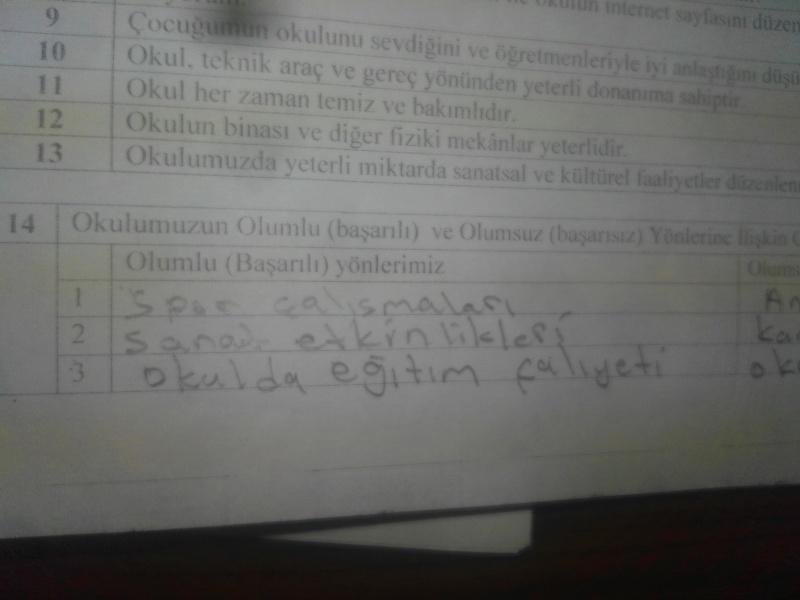 okulun internet sayfasını
9 Çocuğumun okulunu sevdiğini ve öğretmenleriyle iyi anlaştığını
10 Okul, teknik araç ve gereç yönünden yeterli donanıma sahiptir.
11 Okul her zaman temiz ve bakımlıdır.
12 Okulun binası ve diğer fiziki mekânlar yeterlidir.
13 Okulumuzda yeterli miktarda sanatsal ve kültürel faaliyetler
14 Okulumuzun Olumlu (başarılı) ve Olumsuz (başarısız) Yönlerine İlişkin
Olumlu (Başarılı) yönlerimiz
1 Spor çalışmaları
2 sanat etkinlikleri
3 okulda eğitim faliyeti